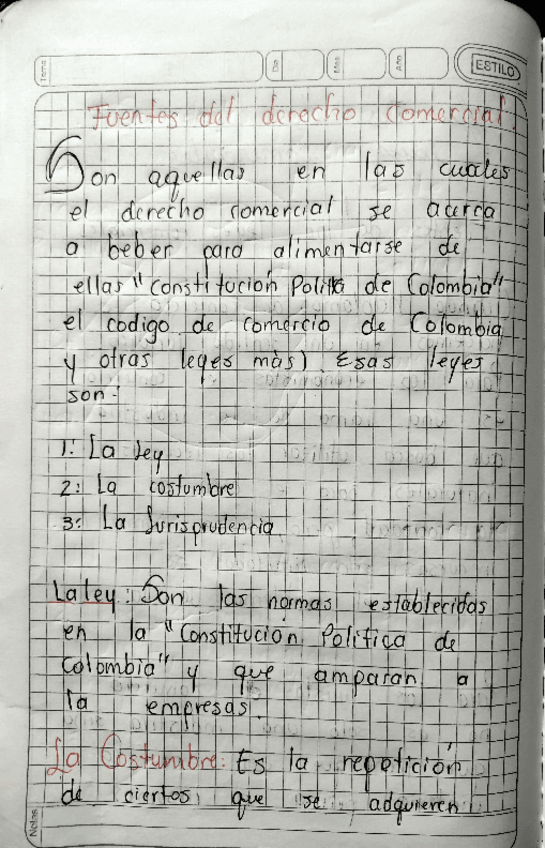 Tema
Dia
Mes
Año
ESTILO
Fuentes del derecho comercial
Son aquellas en las cuales
el derecho comercial se acerca
a beber para alimentarse de
ellas "Constitución Politi de Colombia"
el codigo de comercio de Colombia
y otras leyes màs) Esas leyes
son:
1: La ley
2: La costumbre
3: La Jurisprudencia
La ley: Son las normas establecidas
en la "Constitución Politica de
Colombia" y que amparan a
la empresas.
La Costumbre: Es la repetición
de ciertos que se adquieren
Notas